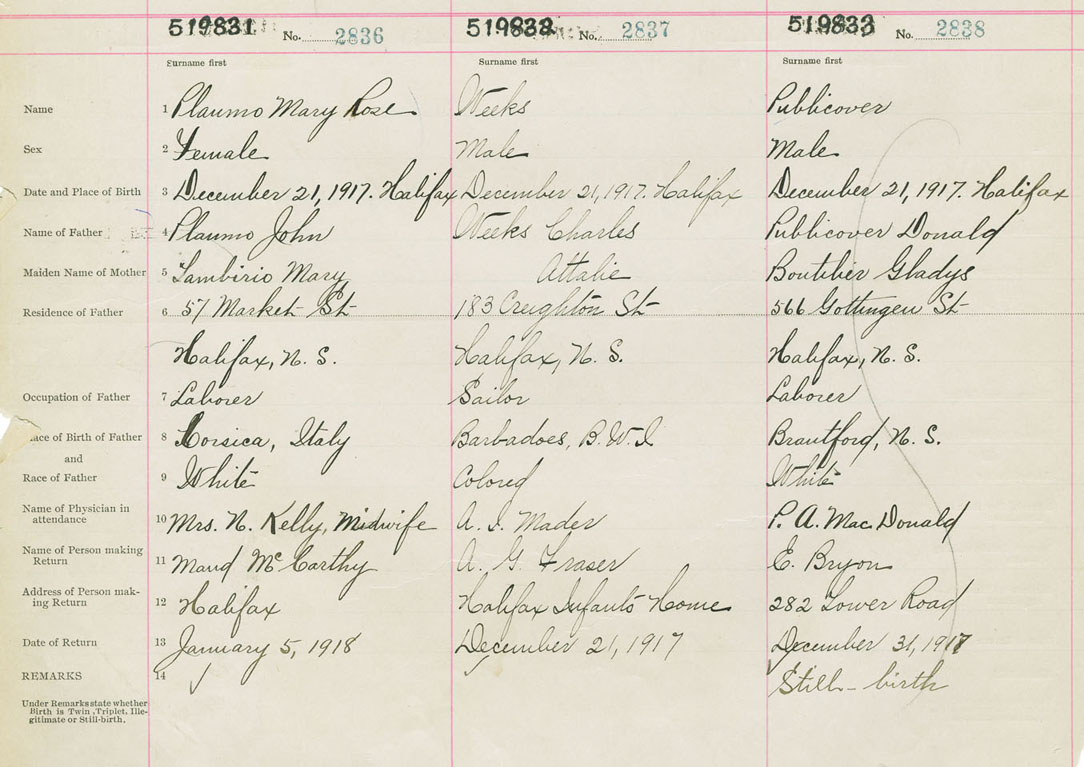 519831 No. 2836 519832 No. 2837 519833 No. 2838
Surname first Surname first Surname first
Name 1 Plaumo Mary Rose Weeks Publicover
Sex 2 Female Male Male
Date and Place of Birth 3 December 21, 1917. Halifax December 21, 1917. Halifax December 21, 1917. Halifax
Name of Father 4 Plaumo John Weeks Charles Publicover Donald
Maiden Name of Mother 5 Lambirio Mary Attalie Boutilier Gladys
Residence of Father 6 57 Market St 183 Creighton St 566 Gottingen St
Halifax, N. S. Halifax, N. S. Halifax, N. S.
Occupation of Father 7 Laborer Sailor Laborer
lace of Birth of Father 8 Corsica, Italy Barbadoes, B.W.I Brantford, N. S.
and
Race of Father 9 White Colored White
Name of Physician in
attendance 10 Mrs. N. Kelly, Midwife A. I. Mader P. A. Mac Donald
Name of Person making
Return 11 Maud McCarthy A. G. Fraser E. Bryon
Address of Person mak-
ing Return 12 Halifax Halifax Infants Home 282 Lower Road
Date of Return 13 January 5, 1918 December 21, 1917 December 31, 1917
REMARKS 14 Still-birth
Under Remarks state whether
Birth is Twin, Triplet, Ille-
gitimate or Still-birth.